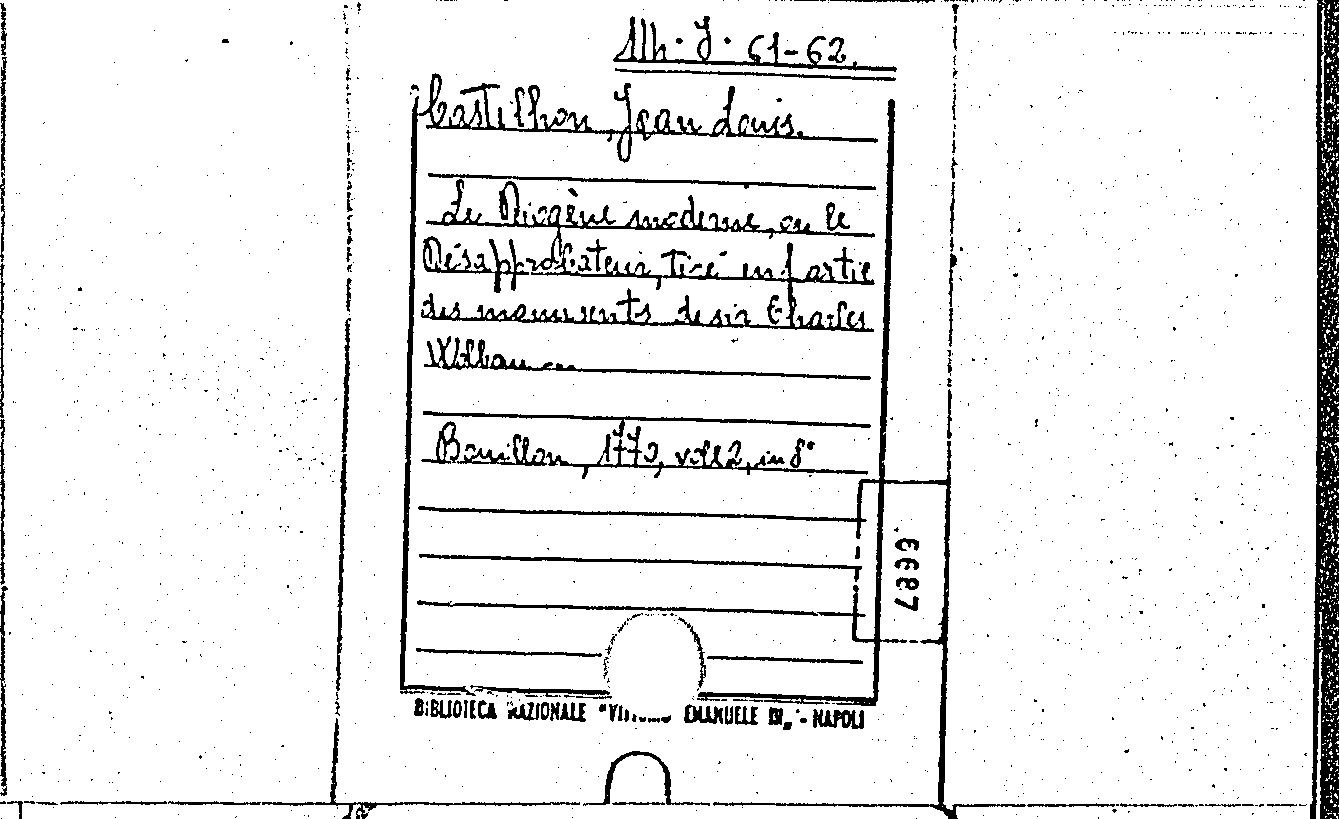 Alh. J. 61-62.
Castilhon, Jean Louis.
Le Diogène moderne, ou le
Désapprobateur, tiré en partie
des manuscrits de sir Charles
Wolban
Bouillon, 1770, voll 2, in 8°
6687
BIBLIOTECA NAZIONALE "VITTORIO EMANUELE III" - NAPOLI